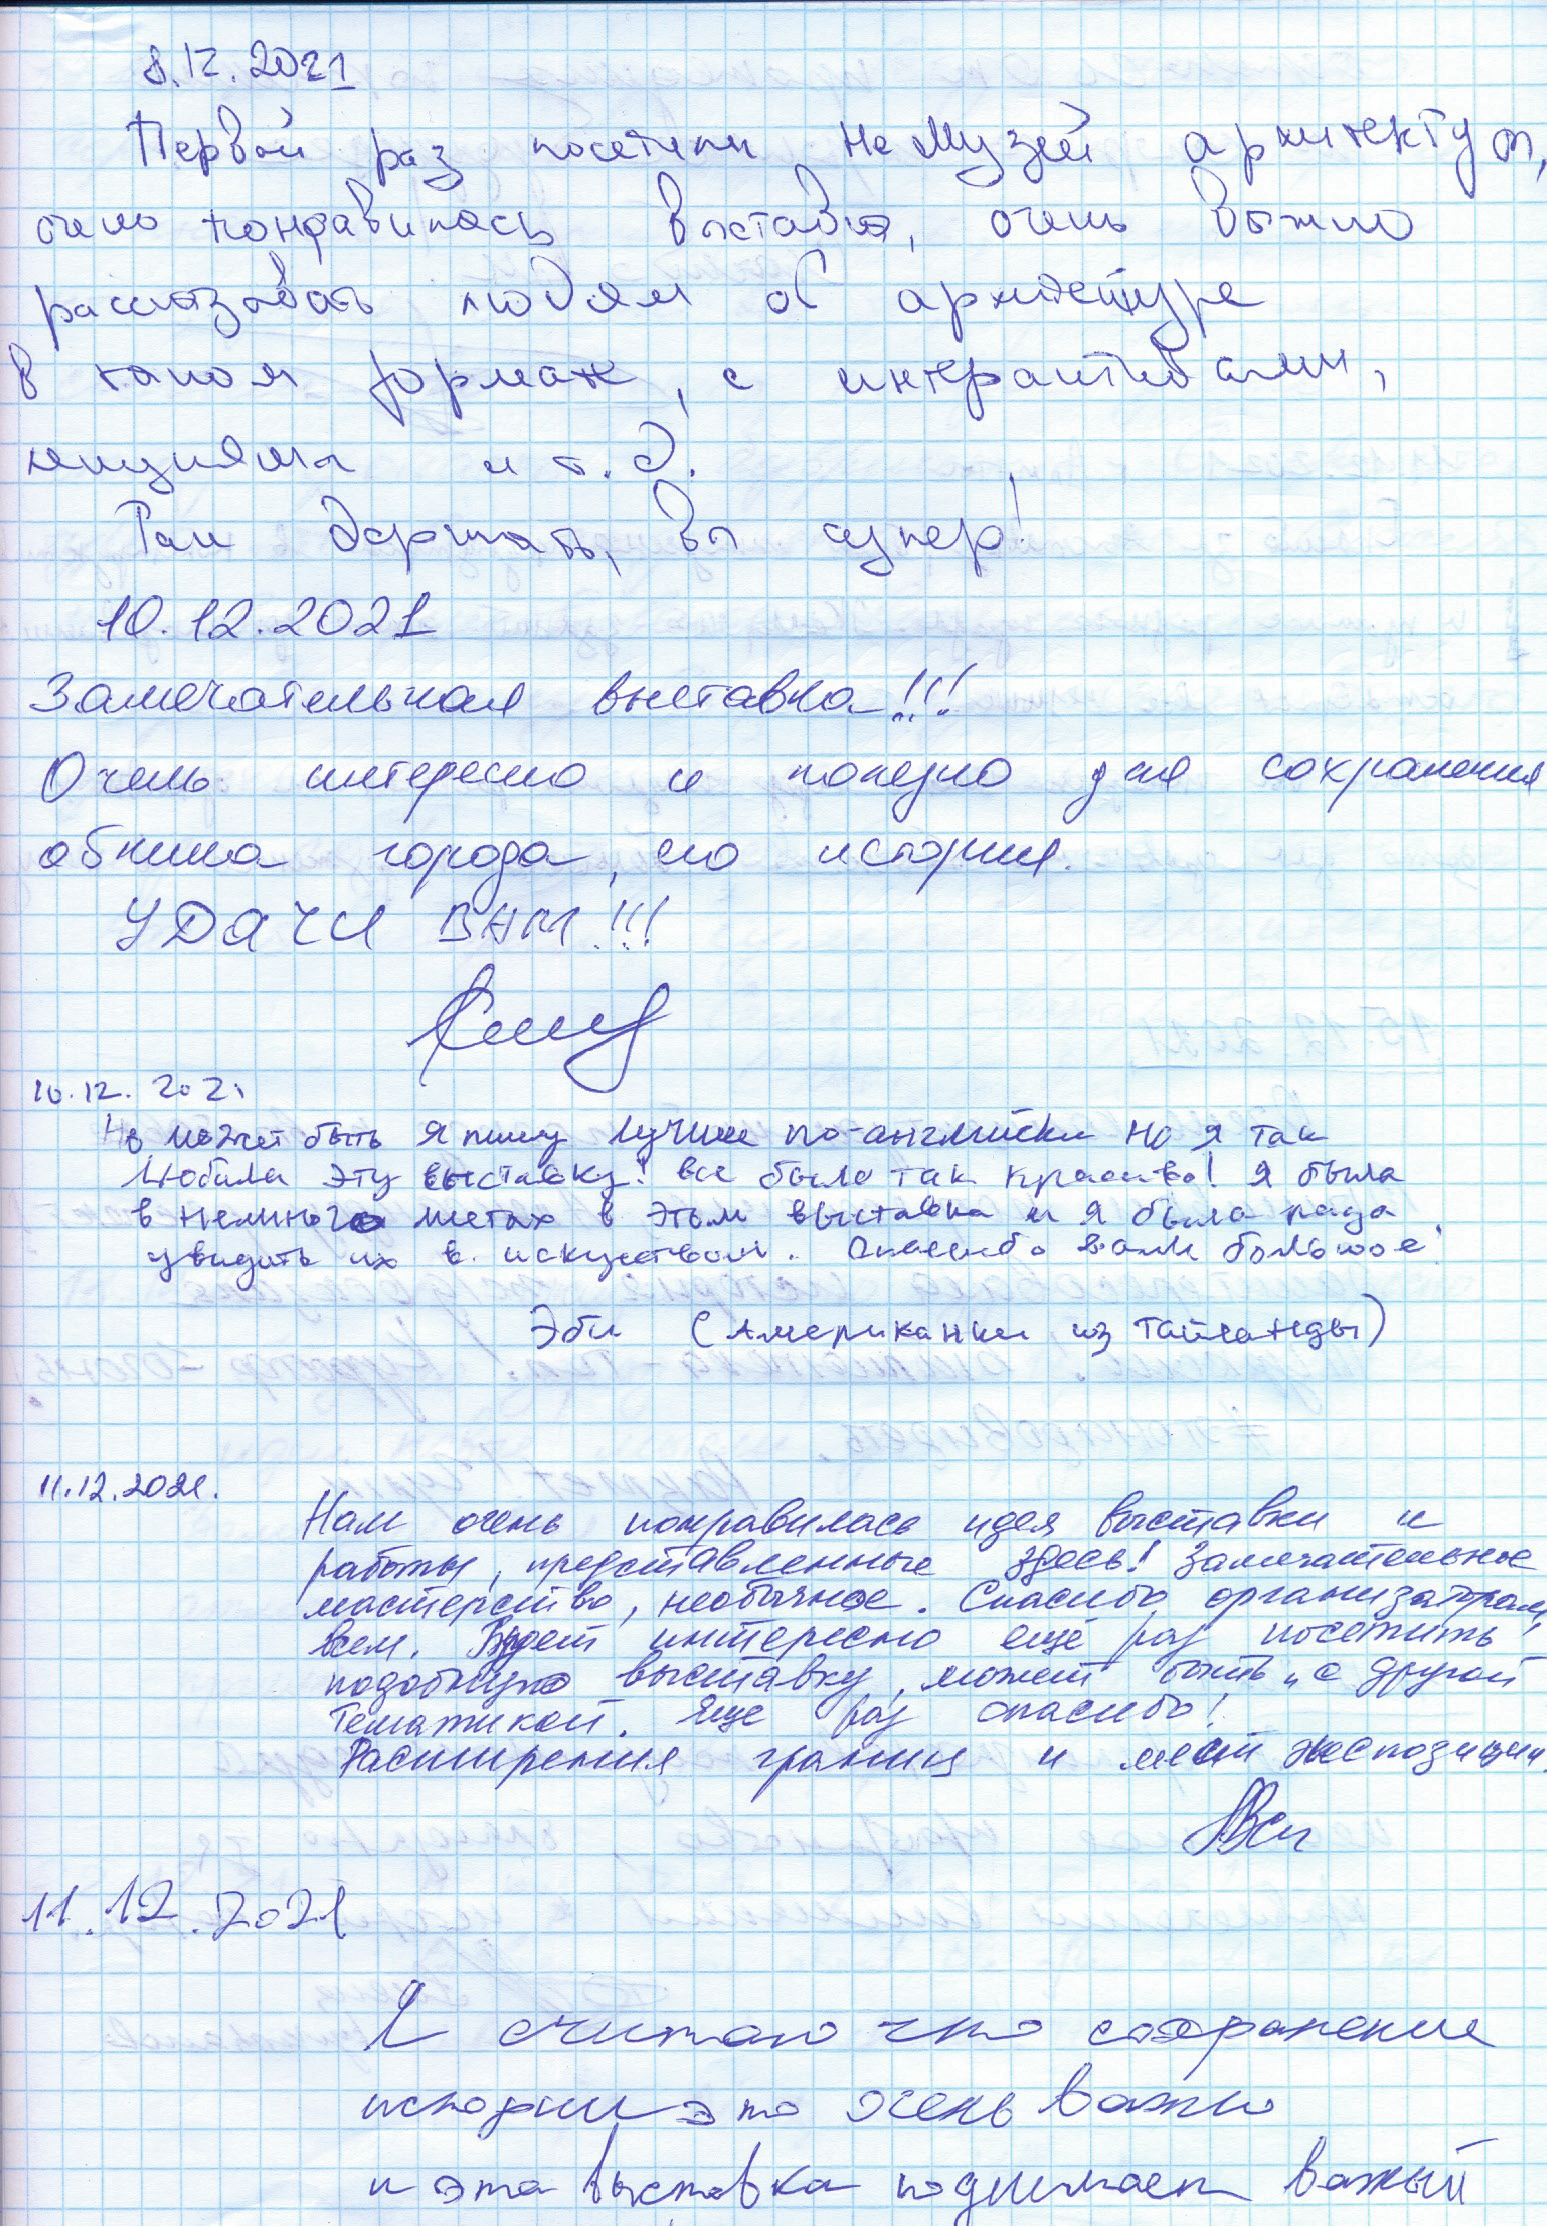 8.12.2021
Первый раз посетили НеМузей архитектуры,
очень понравилась выставка, очень важно
рассказывать людям об архитектуре
в таком формате, с интерактивами,
лекциями и т.д.
Так держать, вы супер!
10.12.2021
Замечательная выставка!!!
Очень интересно и полезно для сохранения
облика города, его истории.
УДАЧИ ВАМ!!!
10.12.2021
может быть я пишу лучше по-английски но я так
любила эту выставку! все было так красиво! я была
в немного местах в этом выставка и я была рада
увидить их в искуством. Спасибо вам большое!
Эби (Американки из Тайланды)
11.12.2021.
Нам очень понравилась идея выставки и
работы, представленные здесь! Замечательное
мастерство, необычное. Спасибо организаторам,
всем. Будет интересно ещё раз посетить
подобную выставку, может быть, с другой
тематикой. Еще раз спасибо!
Расширения границ и мест экспозиции.
11.12.2021
Я считаю что сохранение
истории это очень важно
и эта выставка поднимает важный